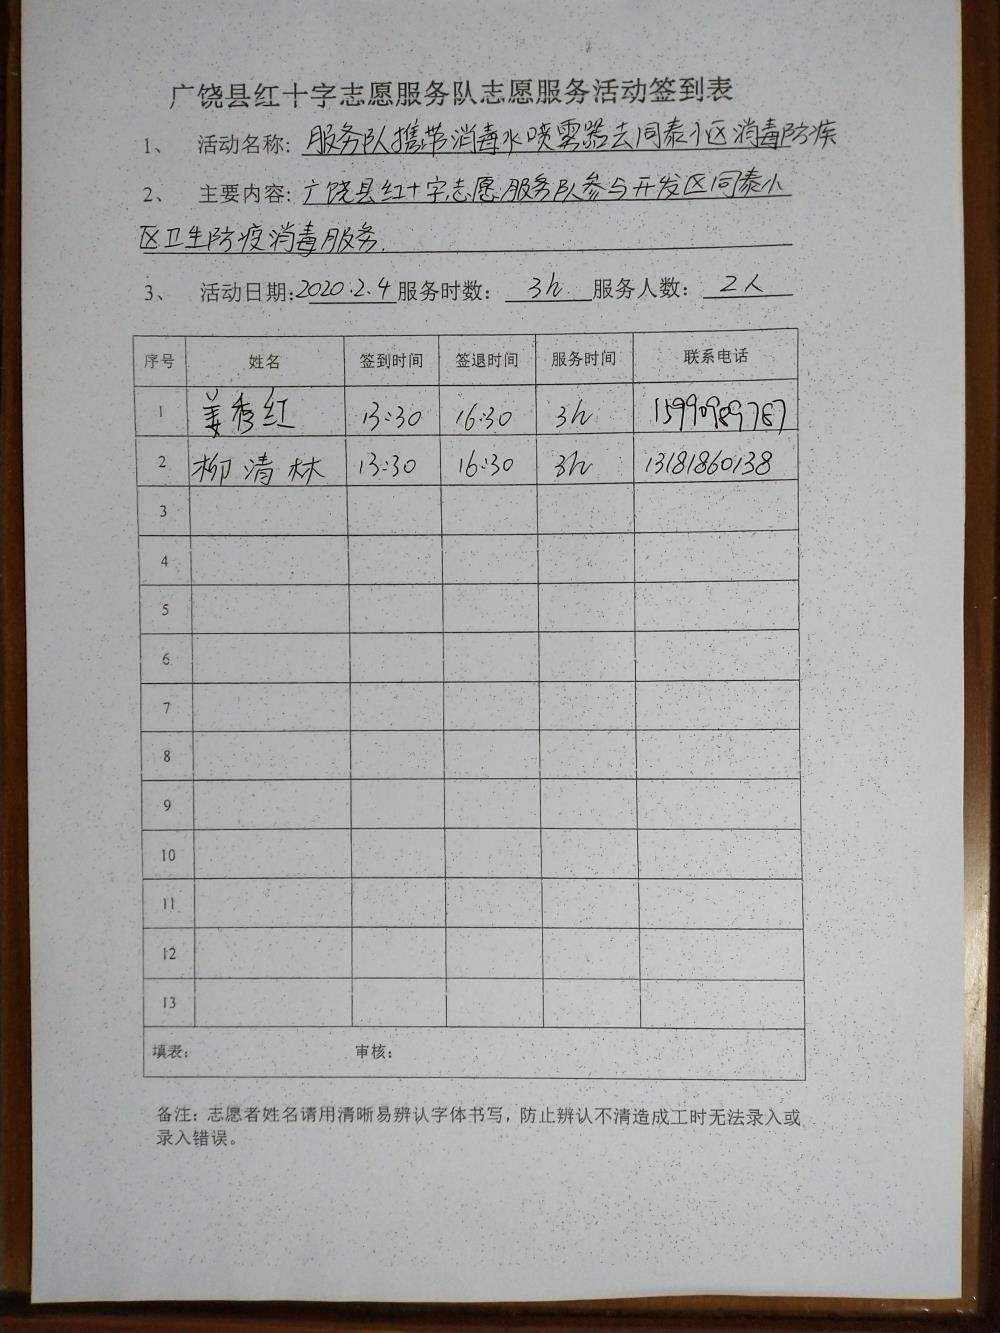 广饶县红十字志愿服务队志愿服务活动签到表
1、 活动名称: 服务队携带消毒水喷雾器去同泰小区消毒防疾
2、 主要内容: 广饶县红十字志愿服务队参与开发区同泰小
区卫生防疫消毒服务.
3、 活动日期: 2020.2.4 服务时数: 3h 服务人数: 2人
序号 姓名 签到时间 签退时间 服务时间 联系电话
1 姜秀红 13:30 16:30 3h 15990989787
2 柳清林 13:30 16:30 3h 13181860138
3
4
5
6
7
8
9
10
11
12
13
填表: 审核:
备注: 志愿者姓名请用清晰易辨认字体书写，防止辨认不清造成工时无法录入或
录入错误。